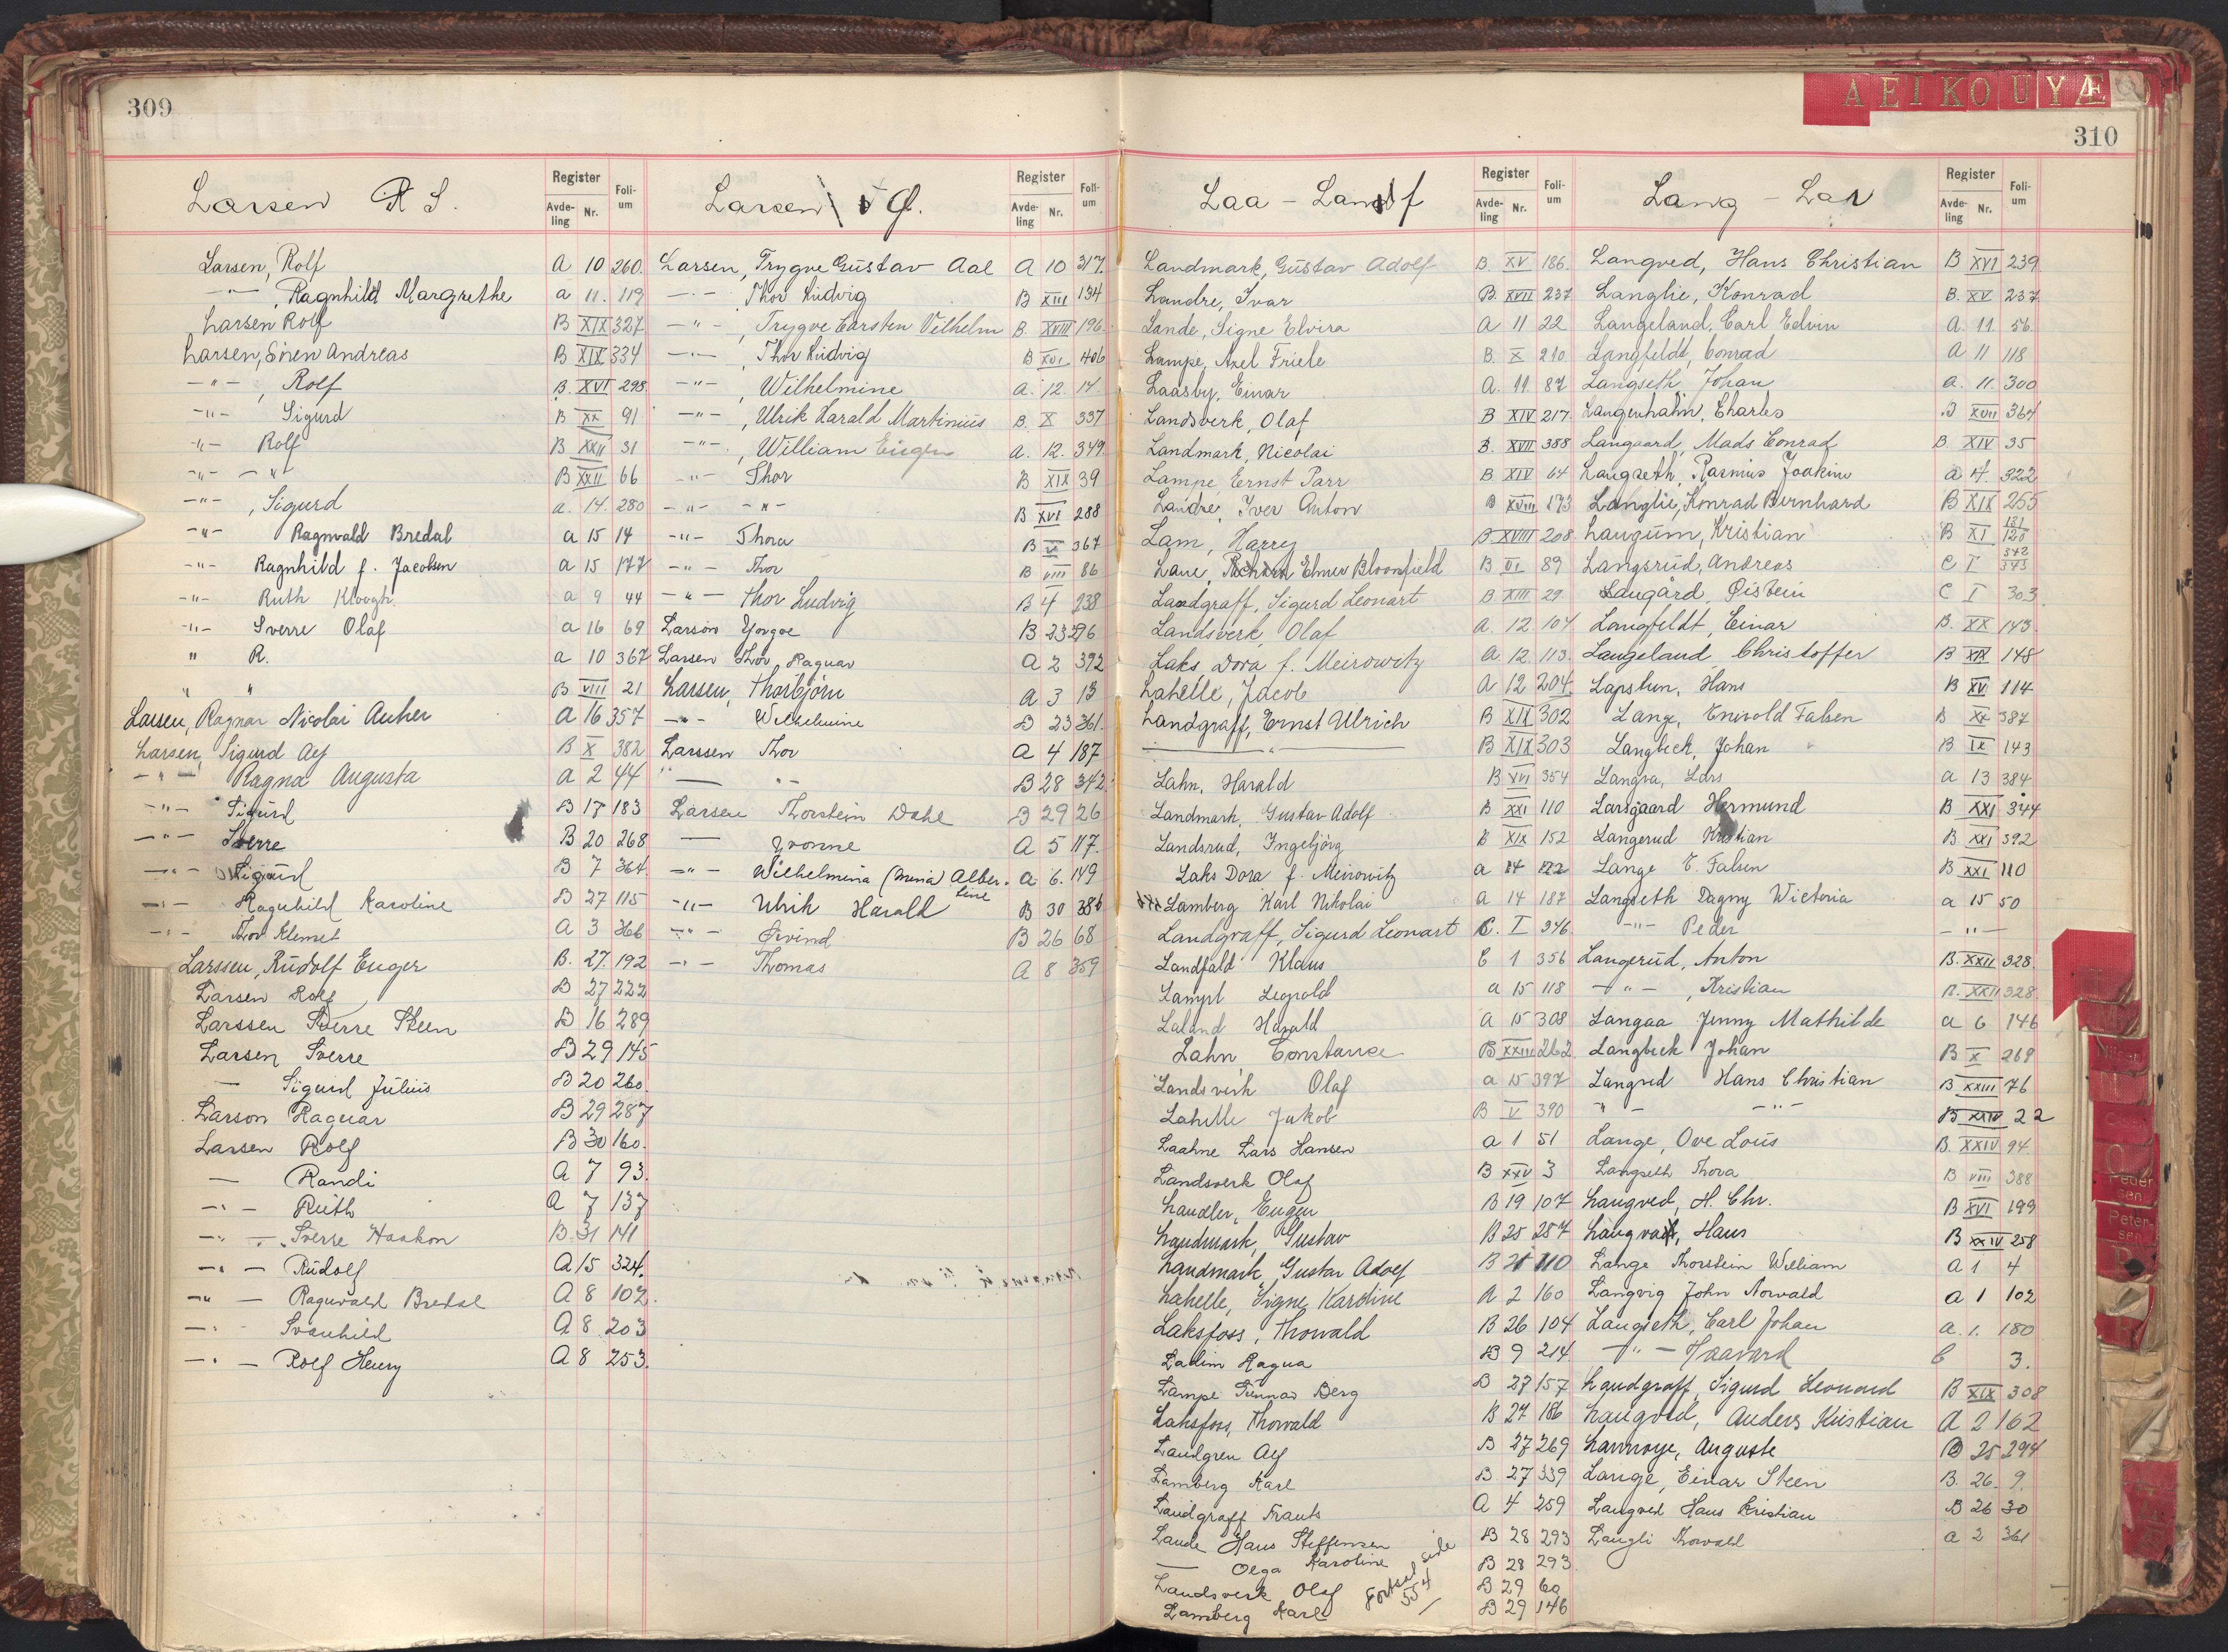 309
Larsen R S.
Register
Avde-ling Nr. Foli-um
Larsen, Rolf A 10 260.
—"— , Ragnhild Margrethe a 11. 119
Larsen Rolf B XIX 327
Larsen, Sören Andreas B XIX 334
—"— , Rolf B. XVI 298.
—"— Sigurd B XX 91
—"— Rolf B XXII 31
—"— —"— B XXII 66
—"— , Sigurd a. 14. 280
—"— Ragnvald Bredal a 15 14
—"— Ragnhild f. Jacobsen a 15 177
—"— Ruth Klovgh. a 9 44
—"— Sverre Olaf a 16 69
" R. a 10 367
" " B VIII 21
Larsen, Ragnar Nicolai Anker A 16 357
Larsen, Sigurd Alf B X 382
—"— Ragna Augusta A 2 44
—"— Sigurd B 17 183
—"— Sverre B 20 268
—"— Sigurd B 7 364.
—"— Ragnhild Karoline B 27 115
—"— Thor Klemet A 3 366
Larssen, Rudolf Enger B. 27. 192
Larsen Rolf B 27 222
Larssen Sverre Steen B 16 289
Larsen Sverre B 29 145
— Sigurd Julius B 20 260.
Larson Ragnar B 29 287
Larsen Rolf B 30 160.
— Randi A 7 93.
—"— Ruth A 7 137
—"— Sverre Haakon B 31 141
—"— Rudolf A 15 324.
—"— Ragnvald Bredal A 8 102.
—"— Svanhild A 8 203
—"— Rolf Henry A 8 253.
Larsen Ø.
Register
Avde-ling Nr. Foli-um
Larsen, Trygve Gustav Aal A 10 317.
—"— Thor Ludvig B XIII 134
—"— , Trygve Carsten Vilhelm B. XVIII 196.
—"— , Thor Ludvig B XVI 406
—"— , Wilhelmine a. 12. 17.
—"— , Ulrik Harald Martinius B. X 337
—"— , William Eugen a. 12. 349.
—"— Thor B XIX 39
—"— —"— B XVI 288
—"— Thora B V 367
—"— Thor B VIII 86
—"— Thor Ludvig B 4 238
Larson Yngve B 23 296
Larsen Thor Ragnar A 2 392
Larsen, Thorbjörn A 3 13
—"— Wilhelmine B 23 361.
Larssen Thor A 4 187
"— "— B 28 342.
Larsen Thorstein Dahl B 29 26
— Yvonne A 5 117.
—"— Wilhelmina (Mina) Albertine A. 6. 149
—"— Ulrik Harald B 30 386
—"— Øivind B 26 68
—"— Thomas A 8 359
A E I K O U Y Æ Ø
310
Laa – Landf
Register
Avde-ling Nr. Foli-um
Landmark, Gustav Adolf B. XV 186.
Landre, Ivar B. XVII 237
Lande, Signe Elvira A 11 22
Lampe, Axel Friele B. X 210
Laasby, Einar A. 11. 87
Landsverk, Olaf B XIV 217.
Landmark, Nicolai B. XVII 388
Lampe Ernst Parr B XIV 64
Landre, Iver Anton B XVIII 173
Lam, Harry B XVIII 208
Lane, Elmer Bloomfield B VI 89
Landgraff, Sigurd Leonart B XIII 29.
Landsverk Olaf A. 12. 104
Laks Dora f. Meirowitz A. 12. 113.
Lahelle, Jacob A 12 204.
Landgraff, Ernst Ulrich B XIX 302
—"— B XIX 303
Lahn, Harald B XVI 354
Landmark, Gustav Adolf B XXI 110
Landsrud, Ingebjörg B XIX 152
Laks Dora f. Meirowitz a 14 122
Lamberg Karl Nikolai a 14 187
Landgraff, Sigurd Leonart C. I 346.
Landfald Klaus C 1 356
Lampl Leopold a 15 118
Laland Harald A 15 308
Lahn Constance B XXIII 262.
Landsverk Olaf a 15 397
Lahelle Jakob B V 390
Laahne Lars Hansen a 1 51
Landsverk Olaf B XXV 3
Landler, Eugen B 19 107
Landmark, Gustav B 25 257
Landmark, Gustav Adolf B 21 110
Lahelle, Signe Karoline A 2 160
Laksfoss, Thorvald B 26 104
Ladim Ragna B 9 214.
Lampe Gunnar Berg B 27 157
Laksfoss, Thorvald B 27 186
Landgren Alf B 27 269
Lamberg Karl B 27 339
Landgraff Frants A 4 259
Lande Hans Steffensen B 28 293
— Olga Karoline B 28 293.
Landsverk Olaf B 29 60
Lamberg Karl B 29 146
Fortsat side 554
Lang – Lar
Register
Avde-ling Nr. Foli-um
Langved, Hans Christian B XVI 239
Langlie, Konrad B. XV 237
Langeland, Carl Edvin A. 11. 56.
Langfeldt, Conrad A 11 118
Langseth, Johan a. 11. 300
Langenhahn, Charles B XVII 364
Langaard, Mads Conrad B. XIV 35
Langseth, Rasmus Joakim a 4. 322
Langlie, Konrad Bernhard B XIX 255
Langum, Kristian B XI 181 120
Langsrud, Andreas C I 342 343
Langård, Øistein C I 303
Langfeldt, Einar B. XX 143.
Langeland Christoffer B XIX 148
Lapshun, Hans B XV 114
Lang, Enevold Falsen B XX 387
Langbeck, Johan B IX 143
Langva, Lars a 13 384
Larsgaard Hermund B XXI 344
Langerud Kristian B XXI 392
Lange E. Falsen B XXI 110
Langseth Dagny Wictoria a 15 50
—"— Peder —"—
Langerud, Anton B. XXII 328.
—"— , Kristian B. XXII 328.
Langaa Jenny Mathilde a 6 146
Langbeck Johan B X 269
Langved Hans Christian B XXIII 76
"— —"— B XXIV 22
Lange, Ove Louis B. XXIV 94.
Langseth Thora B VIII 388
Langved, H. Chr. B XVI 199
Langvad, Hans B XXIV 258
Lange Thorstein William A 1 4
Langvig John Norvald a 1 102
Langseth, Carl Johan a. 1. 180
—"— Haavard C 3.
Landgraff, Sigurd Leonard B XIX 308
Langved, Anders Kristian A 2 162
Lannoye, Auguste B 25 294
Lange, Einar Steen B. 26. 9.
Langved Hans Kristian B 26 30
Langli Thorvald a 2 361
Nilsen
Peder sen
Peter sen